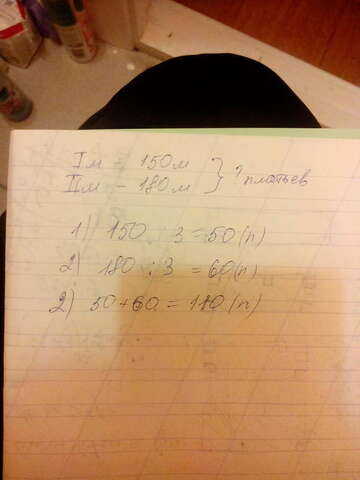 Iм - 150м
IIм - 180м } ? платьев
1) 150 : 3 = 50 (п)
2) 180 : 3 = 60 (п)
2) 50 + 60 = 110 (п)